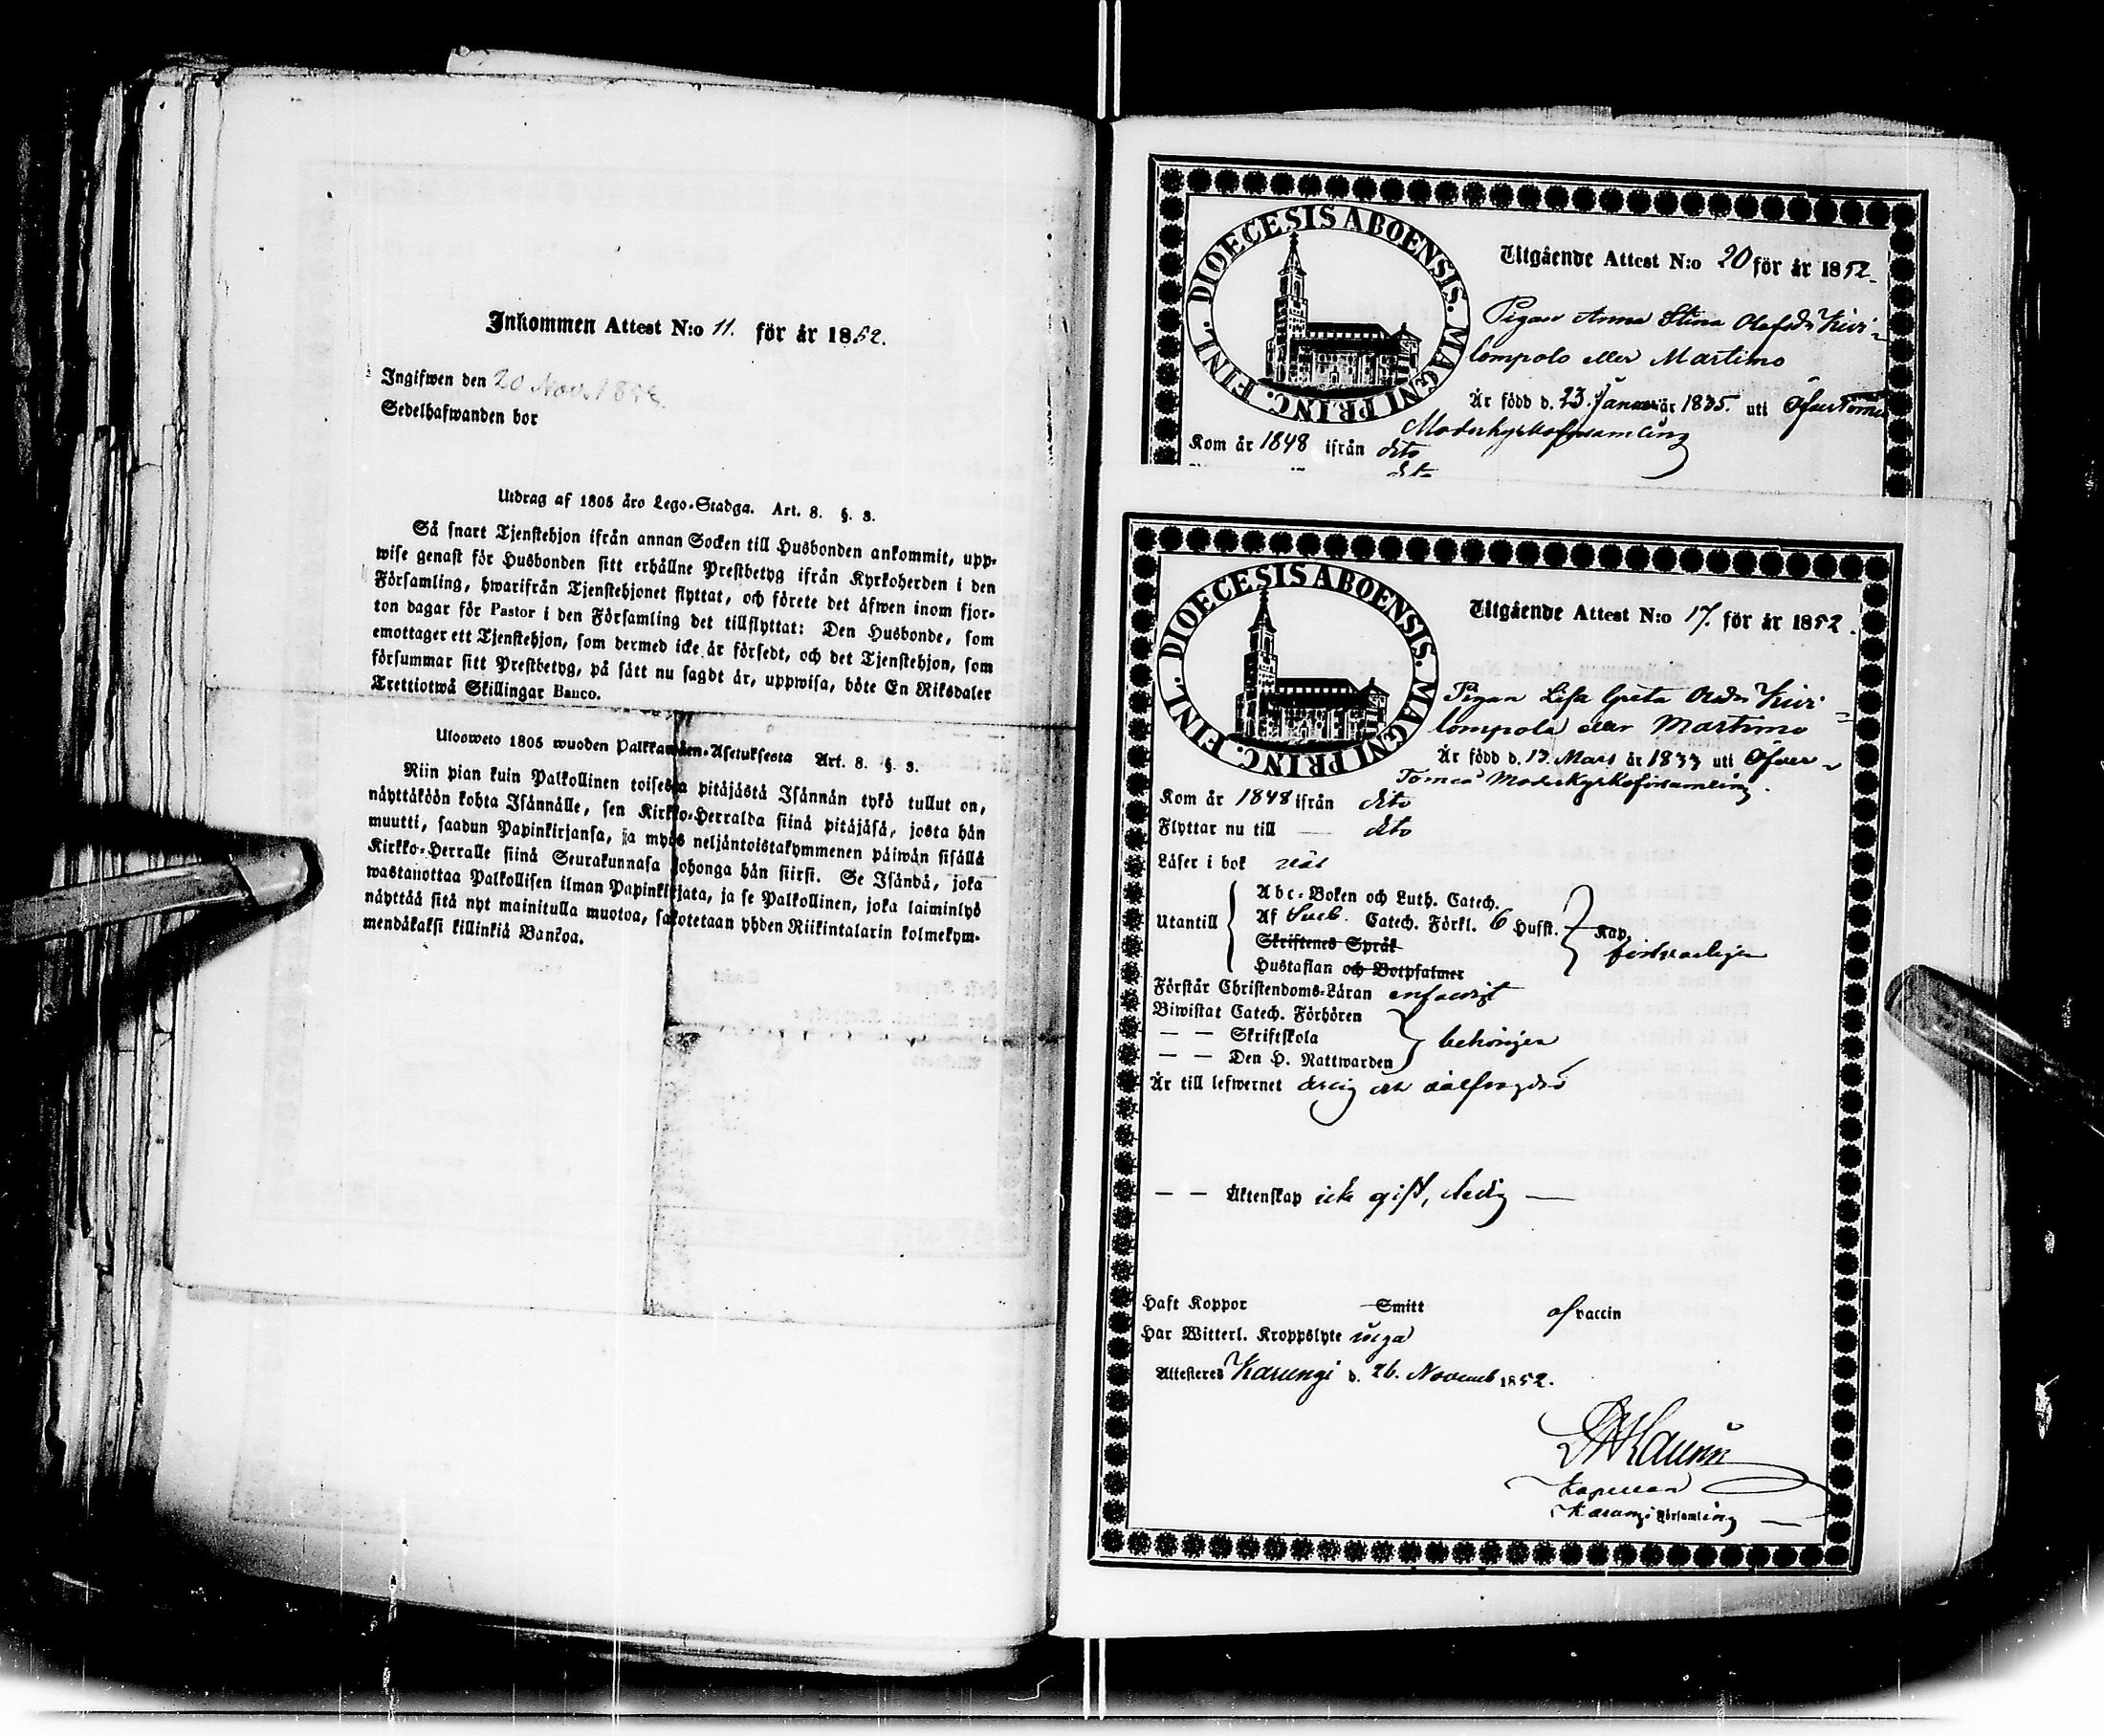 Inkommen Attest N:o 11. för år 1852.
Ingifwen den 20 Nov. 1852.
Sedelhafwanden bor
Utdrag af 1805 års Lego-Stadga. Art. 8. §. 3.
Så snart Tjenstehjon ifrån annan Socken till Husbonden ankommit, upp-
wise genast för Husbonden sitt erhållne Prestbetyg ifrån Kyrkoherden i den
Församling, hwarifrån Tjenstehjonet flyttat, och förete det äfwen inom fjor-
ton dagar för Pastor i den Församling det tillflyttat: Den Husbonde, som
emottager ett Tjenstehjon, som dermed icke är försedt, och det Tjenstehjon, som
försummar sitt Prestbetyg, på sätt nu sagdt är, uppwisa, böte En Riksdaler
Trettiotwå Skillingar Banco.
Ulosweto 1805 wuoden Palkkawäen-Asetuksesta Art. 8. §. 3.
Niin pian kuin Palkollinen toisesta pitäjästä Isännän tykö tullut on,
näyttäköön kohta Isännälle, sen Kirkko-Herralda siinä pitäjäsä, josta hän
muutti, saadun Papinkirjansa, ja myös neljäntoistakymmenen päiwän sisällä
Kirkko-Herralle siinä Seurakunnasa johonga hän siirsi. Se Isändä, joka
wastanottaa Palkollisen ilman Papinkirjata, ja se Palkollinen, joka laiminlyö
näyttää sitä nyt mainitulla muotoa, sakotetaan yhden Riikintalarin kolmekym-
mendäkaksi killinkiä Bankoa.
DIOECESIS ABOENSIS. MAGNI PRINC. FINL.
Utgående Attest N:o 20 för år 1852.
Pigan Anna Stina Olofsdr Kivi-
lompolo eller Martimo
Är född d. 23. Januari år 1835. uti Öfver Torneå
Moderkyrkoförsamling
Kom år 1848 ifrån dito
dito
DIOECESIS ABOENSIS. MAGNI PRINC. FINL.
Utgående Attest N:o 17. för år 1852.
Pigan Lisa Greta Olsdr Kivi-
lompolo eller Martimo
Är född d. 13 Mars år 1833 uti Öfver-
Torneå Moderkyrkoförsamling.
Kom år 1848 ifrån dito
Flyttar nu till — dito
Läser i bok väl
Utantill
Abc-Boken och Luth. Catech.
Af Sveb. Catech. Förkl. 6 Hufst. Kap.
Skriftenes Språk
Hustaflan och Botpsalmer
försvarligen
Förstår Christendoms-Läran enfaldigt
Biwistat Catech. Förhören
— — Skriftskola
— — Den H. Nattwarden
behörigen
Är till lefwernet ärlig och välfrejdad
— — Äktenskap icke gift, ledig —
Haft Koppor Smitt af vaccin
Har Witterl. Kroppslyte inga
Attesteres Karungi d. 26. Novemb 1852.
Kapellan
Karungi Församling —